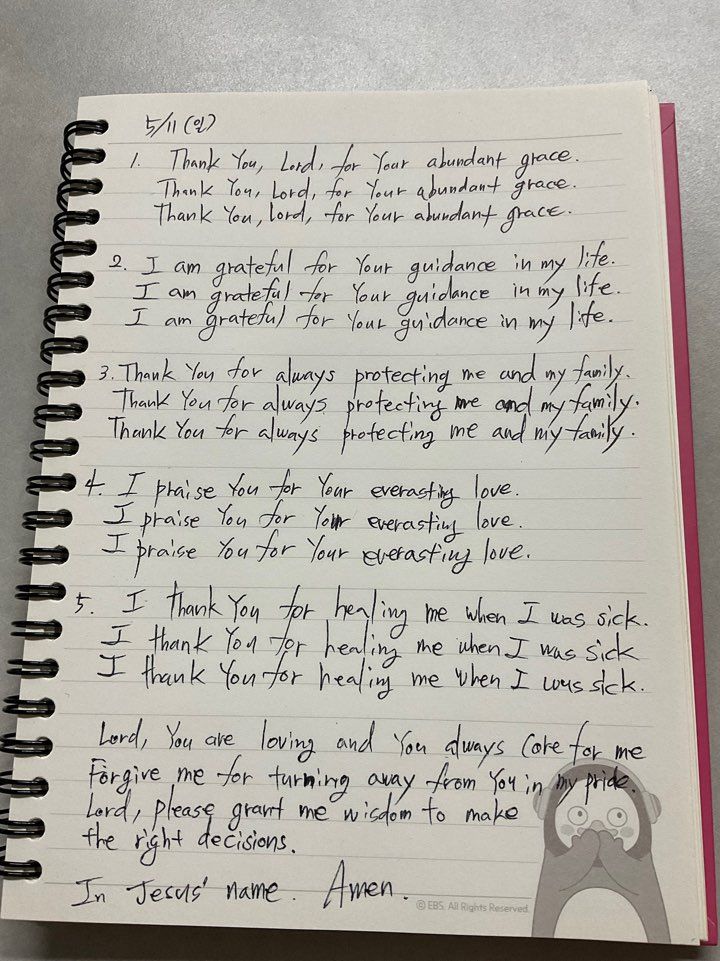 5/11 (일)
1. Thank You, Lord, for Your abundant grace.
Thank You, Lord, for Your abundant grace.
Thank You, Lord, for Your abundant grace.
2. I am grateful for Your guidance in my life.
I am grateful for Your guidance in my life.
I am grateful for Your guidance in my life.
3. Thank You for always protecting me and my family.
Thank You for always protecting me and my family.
Thank You for always protecting me and my family.
4. I praise You for Your everasting love.
I praise You for Your everasting love.
I praise You for Your everasting love.
5. I thank You for healing me when I was sick.
I thank You for healing me when I was sick
I thank You for healing me when I was sick.
Lord, You are loving and You always care for me
Forgive me for turning away from You in my pride.
Lord, please grant me wisdom to make
the right decisions.
In Jesus' name. Amen.
© EBS. All Rights Reserved.